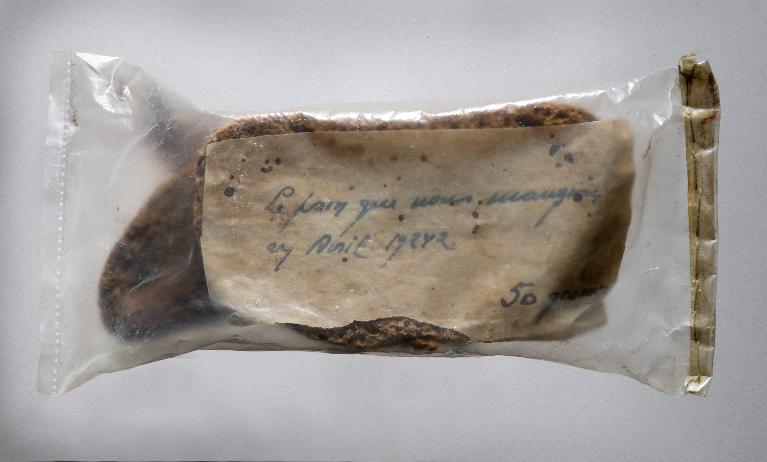 Le pain que nous mangions
en Avril 1942
50 grammes